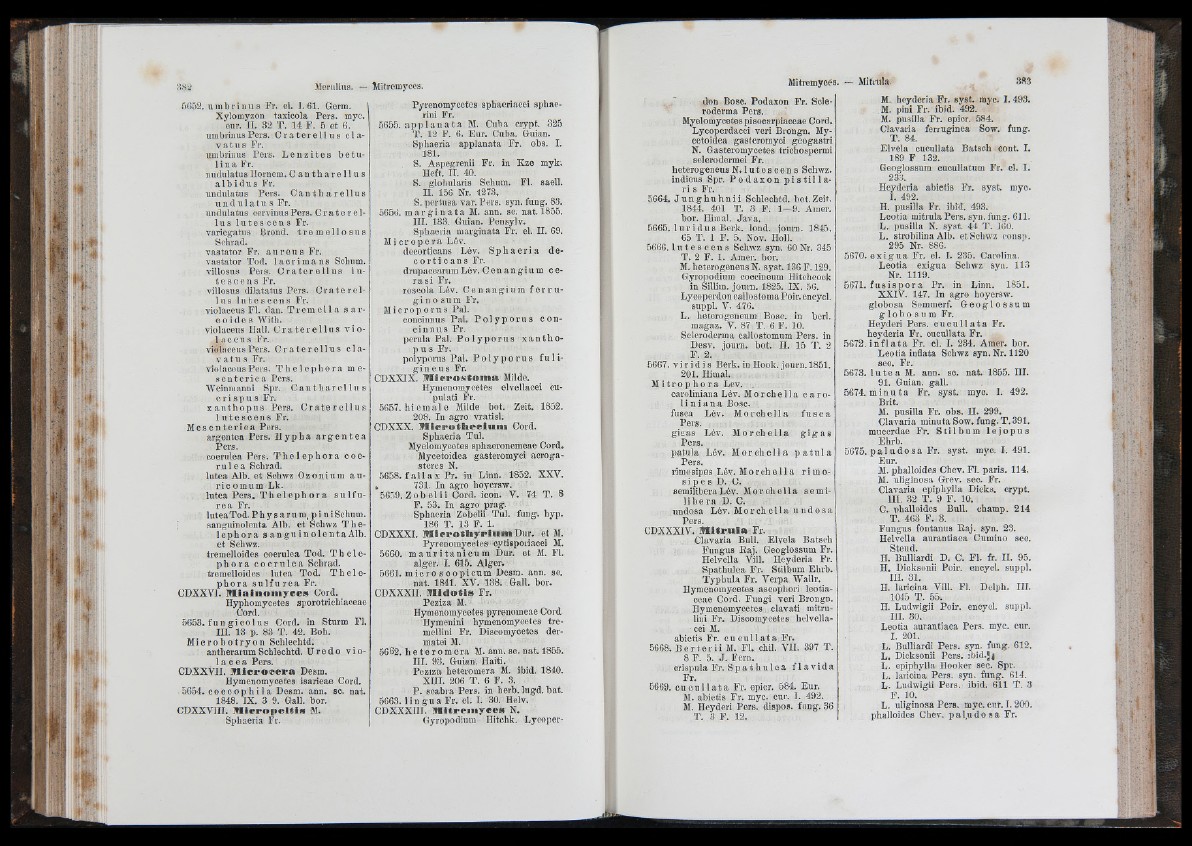 382 Merulius. — Mitremyces.
5652. umbrinus Fr. el. I. 61. Germ.
Xylomyzon taxicola Pers. myc.
eur. II. 32 T. 14 F. 5 et 6.
umbrinus Pers. Craterellus cla-
vatus Fr.
umbrinus Pers. Lenzites betu-
lina Fr.
undulatus Hornem. Cantharellus
albidus Fr.
undulatus Pers. Cantharellus
undulatus Fr.
undulatus cervinus Pers. Craterel-
lus lutescens Fr.
variegatus Brond. tremellosus
Schrad.
vastator Fr. aureus Fr.
vastator Tod. lacrimans Schum.
villosus Pers. Craterellus lu-
tescens Fr.
villosus dilatatus Pers. Craterel-
lus lutescens Fr.
violaceus Fl. dan. Tremella sar-
coides With.
violaceus Hall. Craterellus vio-
laceus Fr.
violaceus Pers. Craterellus cla-
vatus Fr.
violaceus Pers. Thelephora me-
senterica Pers.
Weinmanni Spr. Cantharellus
crispus Fr.
xanthopus Pers. Craterellus
lutescens Fr.
Mesenterica Pers.
argentea Pers. Hypha argentea
Pers.
coerulea Pers. Thelephora coe-
rulea Schrad.
lutea Alb. et Schwz Ozonium au-
ricomum Lk.
lutea Pers. Thelephora sulfu-
rea Fr.
lutea Tod. Physarum pini Schum.
sanguinolenta Alb. et Schwz The-
lephora sanguinolenta Alb.
et Schwz.
tremelloides coerulea Tod. Thele-
phora coerulea Schrad.
tremelloides lutea Tod. Thele-
phora sulfurea Fr.
CDXXVI. Miainomyces Cord.
Hyphomycetes sporotrichiaceae
Cord.
5653. fungicolus Cord. in Sturm Fl.
III. 13 p. 83 T. 42. Boh.
Microbotryon Schlechtd.
antherarum Schlechtd. Uredo vio-
lacea Pers.
CDXXVII. Microcera Desm.
Hymenomycetes isarieae Cord.
5654. coccophila Desm. ann. sc. nat.
1848. IX. 3 9. Gall. bor.
CDXXVIII. Micropeltis M.
Sphaeria Fr.
Pyrenomycetes sphaeriacei sphae-
rini Fr.
5655. applanata M. Cuba crypt. 325
T. 12 F. 6. Eur. Cuba. Guian.
Sphaeria applanata Fr. obs. I.
181.
S. Aspegrenii Fr. in Kze myk.
Heft. II. 40.
S. globularis Schum. Fl. saell.
II. 156 Nr. 1273.
S. pertusa var. Pers. syn. fung. 83.
5656. marginata M. ann. sc. nat. 1855.
III. 183. Guian. Pensylv.
Sphaeria marginata Fr. el. II. 69.
Micropera Lév.
decorticans Lév. Sphaeria de-
corticans Fr.
drupacearum Lév. Cenangium ce-
rasi Fr.
roseola Lév. Cenangium ferru-
ginosum Fr.
Microporus Pal.
concinnus Pal. Polyporus con-
cinnus Fr.
perula Pal. Polyporus xantho-
pus Fr.
polyporus Pal. Polyporus fuli-
gineus Fr.
CDXXIX. Microstoma Milde.
Hymenomycetes elvellacei cu-
pulati Fr.
5657. hiemale Milde bot. Zeit. 1852.
208. In agro vratisl.
CDXXX. Microthecium Cord.
Sphaeria Tul.
Myelomycetes sphaeronemeae Cord.
Mycetoidea gasteromyci aeroga-
steres N.
5658. fallax Pr. in Linn. 1852. XXV.
731. In agro hoyersw.
5659. Zobelii Cord. icon. V. 74 T. 8
F. 53. In agro prag.
Sphaeria Zobelii Tul. fung. hyp.
186 T. 13 F. 1.
CDXXXI. Microthyrium Dur. et M.
Pyrenomycetes cytisporiacei M.
5660. mauritanicum Dur. et M. Fl.
alger. I. 615. Alger.
5661. microscopicum Desm. ann. sc.
nat. 1841. XV. 138. Gall. bor.
CDXXXII. Midotis Fr.
Peziza M.
Hymenomycetes pyrenomeae Cord
Hymenini hymenomycetes tre-
mellini Fr. Discomycetes der-
matei M.
5662. heteromera M. ann. sc. nat. 1855.
III. 93. Guian. Haiti.
Peziza heteromera M. ibid. 1840.
XIII. 206 T. 6 F. 3.
P. scabra Pers. in herb. lugd. bat.
5663. lingua Fr. el. I. 30. Helv.
CDXXXIII. Mitremyces N.
Gyropodium Hitchk. Lycoper-
Mitremyces. — Mitrula 383
don Bosc. Podaxon Fr. Scle-
roderma Pers.
Myelomycetes pisocarpiaceae Cord.
Lycoperdacei veri Brongn. My-
cetoidea gasteromyci geogastri
N. Gasteromycetes trichospermi
sclerodermei Fr.
heterogeneus N. lutescens Schwz.
indicus Spr. Podaxon pistilla-
ris Fr.
5664. Junghuhnii Schlechtd. bot. Zeit.
1844. 401 T. 3 F. 1—9. Amer.
bor. Himal. Java.
5665. luridus Berk. lond. journ. 1845.
65 T. 1 F. 5. Nov. Holl.
5666. lutescens Schwz syn. 60 Nr. 345
T. 2 F. 1. Amer. bor.
M. heterogeneus N. syst. 136 F. 129.
Gyropodium coccineum Hitchcock
in Sillim. journ. 1825. IX. 56.
Lycoperdon callostoma Poir. encycl.
suppl. V. 476.
L. heterogeneum Bosc. in berl.
magaz. V. 87 T. 6 F. 10.
Scleroderma callostomum Pers. in
Desv. journ. bot. II. 15 T. 2
F. 2.
5667. viridis Berk. in Hook. journ. 1851.
201. Himal.
Mitrophora Lev.
caroliniana Lév. Morchella caro-
liniana Bosc.
fusca Lév. Morchella fusca
Pers.
gigas Lév. Morchella gigas
Pers.
patula Lév. Morchella patula
Pers.
rimosipes Lév. Morchella rimo-
sipes D. C.
semilibera Lév. Morchella semi-
libera D. C.
undosa Lév. Morchella undosa
Pers.
CDXXXIV. Mitrula Fr.
Clavaria Bull. Elvela Batsch
Fungus Raj. Geoglossum Fr.
Helvella Vill. Heyderia Fr.
Spathulea Fr. Stilbum Ehrb.
Typhula Fr. Verpa Wallr.
Hymenomycetes ascophori leotia-
ceae Cord. Fungi veri Brongn.
Hymenomycetes clavati mitru-
lini Fr. Discomycetes helvella-
cei M.
abietis Fr. cucullata Fr.
5668. Berterii M. Fl. chil. VII. 397 T.
8 F. 5. J. Fern.
crispula Fr. Spathulea flavida
Fr.
5669. cucullata Fr. epicr. 584. Eur.
M. abietis Fr. myc. eur. I. 492.
M. Heyderi Pers. dispos. fung. 36
T. 3 F. 12.
M. heyderia Fr. syst. myc. I. 493.
M. pini Fr. ibid. 492.
M. pusilla Fr. epicr. 584.
Clavaria ferruginea Sow. fung.
T. 84.
Elvela cucullata Batsch cont. I.
189 F 132.
Geoglossum cucullatum Fr. el. I.
233.
Heyderia abietis Fr. syst. myc.
I. 492.
H. pusilla Fr. ibid. 493.
Leotia mitrula Pers. syn. fung. 611.
L. pusilla N. syst. 44 T. 160.
L. strobilina Alb. et Schwz consp.
295 Nr. 886.
5670. exigua Fr. el. I. 235. Carolina.
Leotia exigua Schwz syn. 113
Nr. 1119.
5671. fusispora Pr. in Linn. 1851.
XXIV. 147. In agro hoyersw.
globosa Sommerf. Geoglossum
globosum Fr.
Heyderi Pers. cucullata Fr.
heyderia Fr. cucullata Fr.
5672. inflata Fr. el. I. 234. Amer. bor.
Leotia inflata Schwz syn. Nr. 1120
sec. Fr.
5673. lutea M. ann. sc. nat. 1855. III.
91. Guian. gall.
5674. minuta Fr. syst. myc. I. 492.
Brit.
M. pusilla Fr. obs. II. 299.
Clavaria minuta Sow. fung. T. 391.
mucerdae Fr. Stilbum lejopus
Ehrb.
5675. paludosa Fr. syst. myc. I. 491.
Eur.
M. phalloides Chev. Fl. paris. 114.
M. uliginosa Grev. sec. Fr.
Clavaria epiphylla Dicks. crypt.
III. 32 T. 9 F. 10.
C. phalloides Bull. champ. 214
T. 463 F. 3.
Fungus fontanus Raj. syn. 23.
Helvella aurantiaca Cumino sec.
Steud.
H. Bulliardi D. C. Fl. fr. II. 95.
H. Dicksonii Poir. encycl. suppl.
III. 31.
H. laricina Vill. Fl. Delph. III.
1045 T. 55.
H. Ludwigii Poir. encycl. suppl.
III. 30.
Leotia aurantiaca Pers. myc. eur.
I. 201.
L. Bulliardi Pers. syn. fung. 612.
L. Dicksonii Pers. ibid.
L. epiphylla Hooker sec. Spr.
L. laricina Pers. syn. fung. 614.
L. Ludwigii Pers. ibid. 611 T. 3
F. 10.
L. uliginosa Pers. myc. eur. I. 200.
phalloides Chev. paludosa Fr.